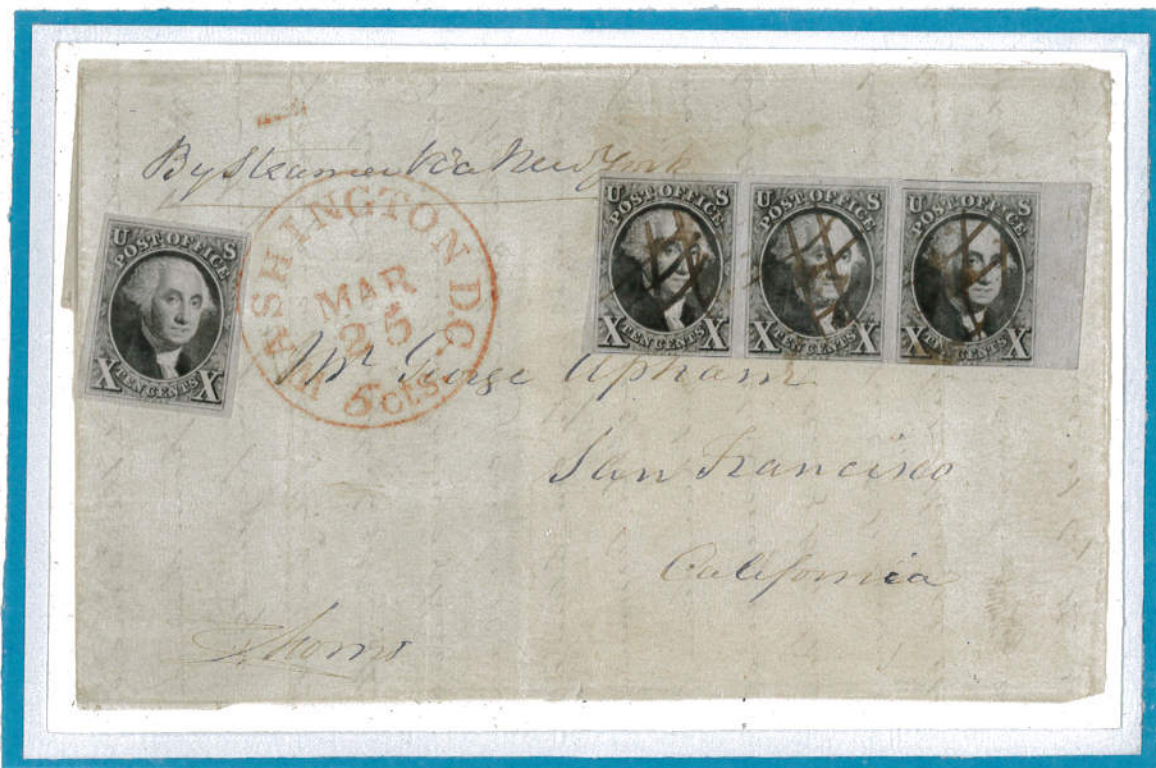 By Steamer Via New York
U S
POST OFFICE
X TEN CENTS X
WASHINGTON D.C.
MAR
25
5 cts.
U S
POST OFFICE
X TEN CENTS X
U S
POST OFFICE
X TEN CENTS X
U S
POST OFFICE
X TEN CENTS X
Mr George Apham
San Francisco
California